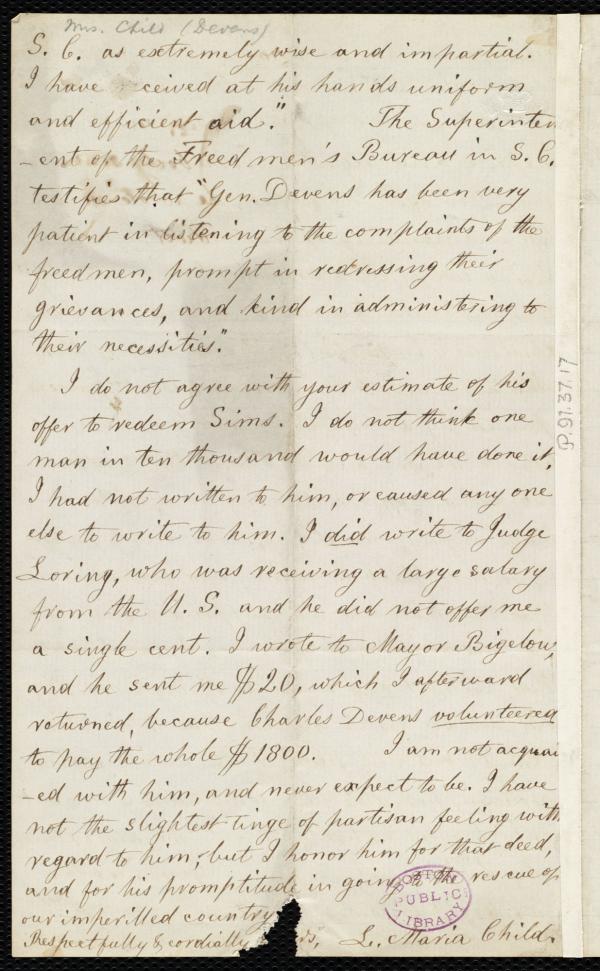 Mrs. Child (Devens)
S. C. as extremely wise and impartial.
I have received at his hands uniform
and efficient aid." The Superinten
-ent of the Freedmen's Bureau in S. C.
testifies that "Gen. Devens has been very
patient in listening to the complaints of the
freedmen, prompt in redressing their
grievances, and kind in administering to
their necessities."
I do not agree with your estimate of his
offer to redeem Sims. I do not think one
man in ten thousand would have done it.
I had not written to him, or caused any one
else to write to him. I did write to Judge
Loring, who was receiving a large salary
from the U. S. and he did not offer me
a single cent. I wrote to Mayor Bigelow,
and he sent me $20, which I afterward
returned, because Charles Devens volunteered
to pay the whole $1800. I am not acquai
-ed with him, and never expect to be. I have
not the slightest tinge of partisan feeling with
regard to him; but I honor him for that deed,
and for his promptitude in going to the rescue of
our imperilled country
Respectfully & cordially rs, L. Maria Child.
BOSTON
PUBLIC
LIBRARY
P.91.37.17